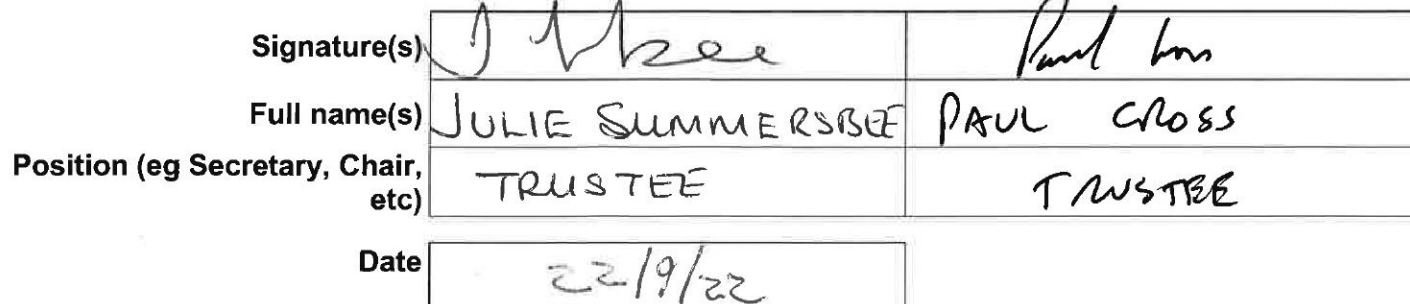 Signature(s)
Full name(s) JULIE SUMMERSBEE PAUL CROSS
Position (eg Secretary, Chair,
etc) TRUSTEE TRUSTEE
Date 22/9/22